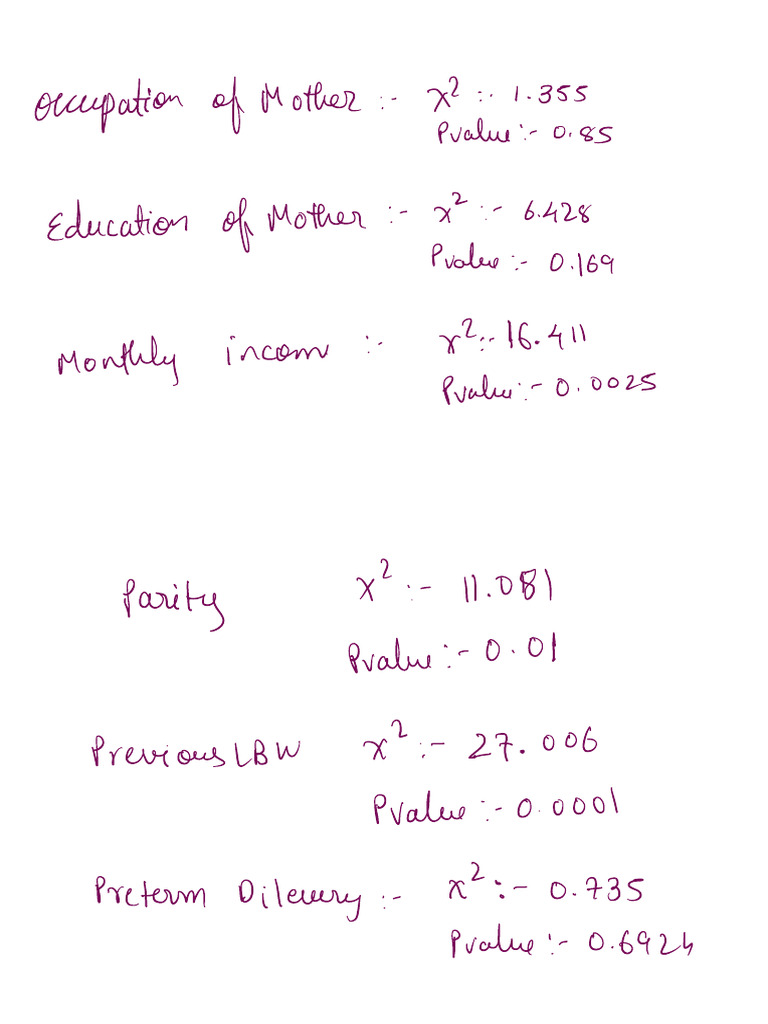 Occupation of Mother :- x² :- 1.355
Pvalue :- 0.85
Education of Mother :- x² :- 6.428
Pvalue :- 0.169
Monthly incom :- x² :- 16.411
Pvalue :- 0.0025
Parity x² :- 11.081
Pvalue :- 0.01
Previous LBW x² :- 27.006
Pvalue :- 0.0001
Preterm Dilevery :- x² :- 0.735
Pvalue :- 0.6924